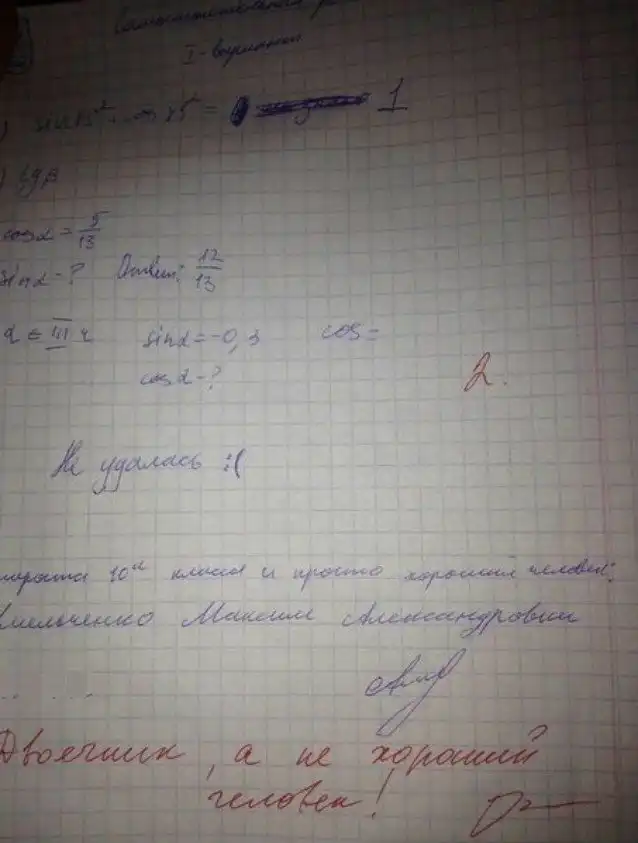 I - вариант
= 1
cosα = 5/13
sinα - ? Ответ: 12/13
α ∈ III ч sinα = -0,3 cos =
cosα - ?
2.
Не удалась :(
10 класса и просто хороший человек:
Максим Александрович
Двоечник, а не хороший
человек!